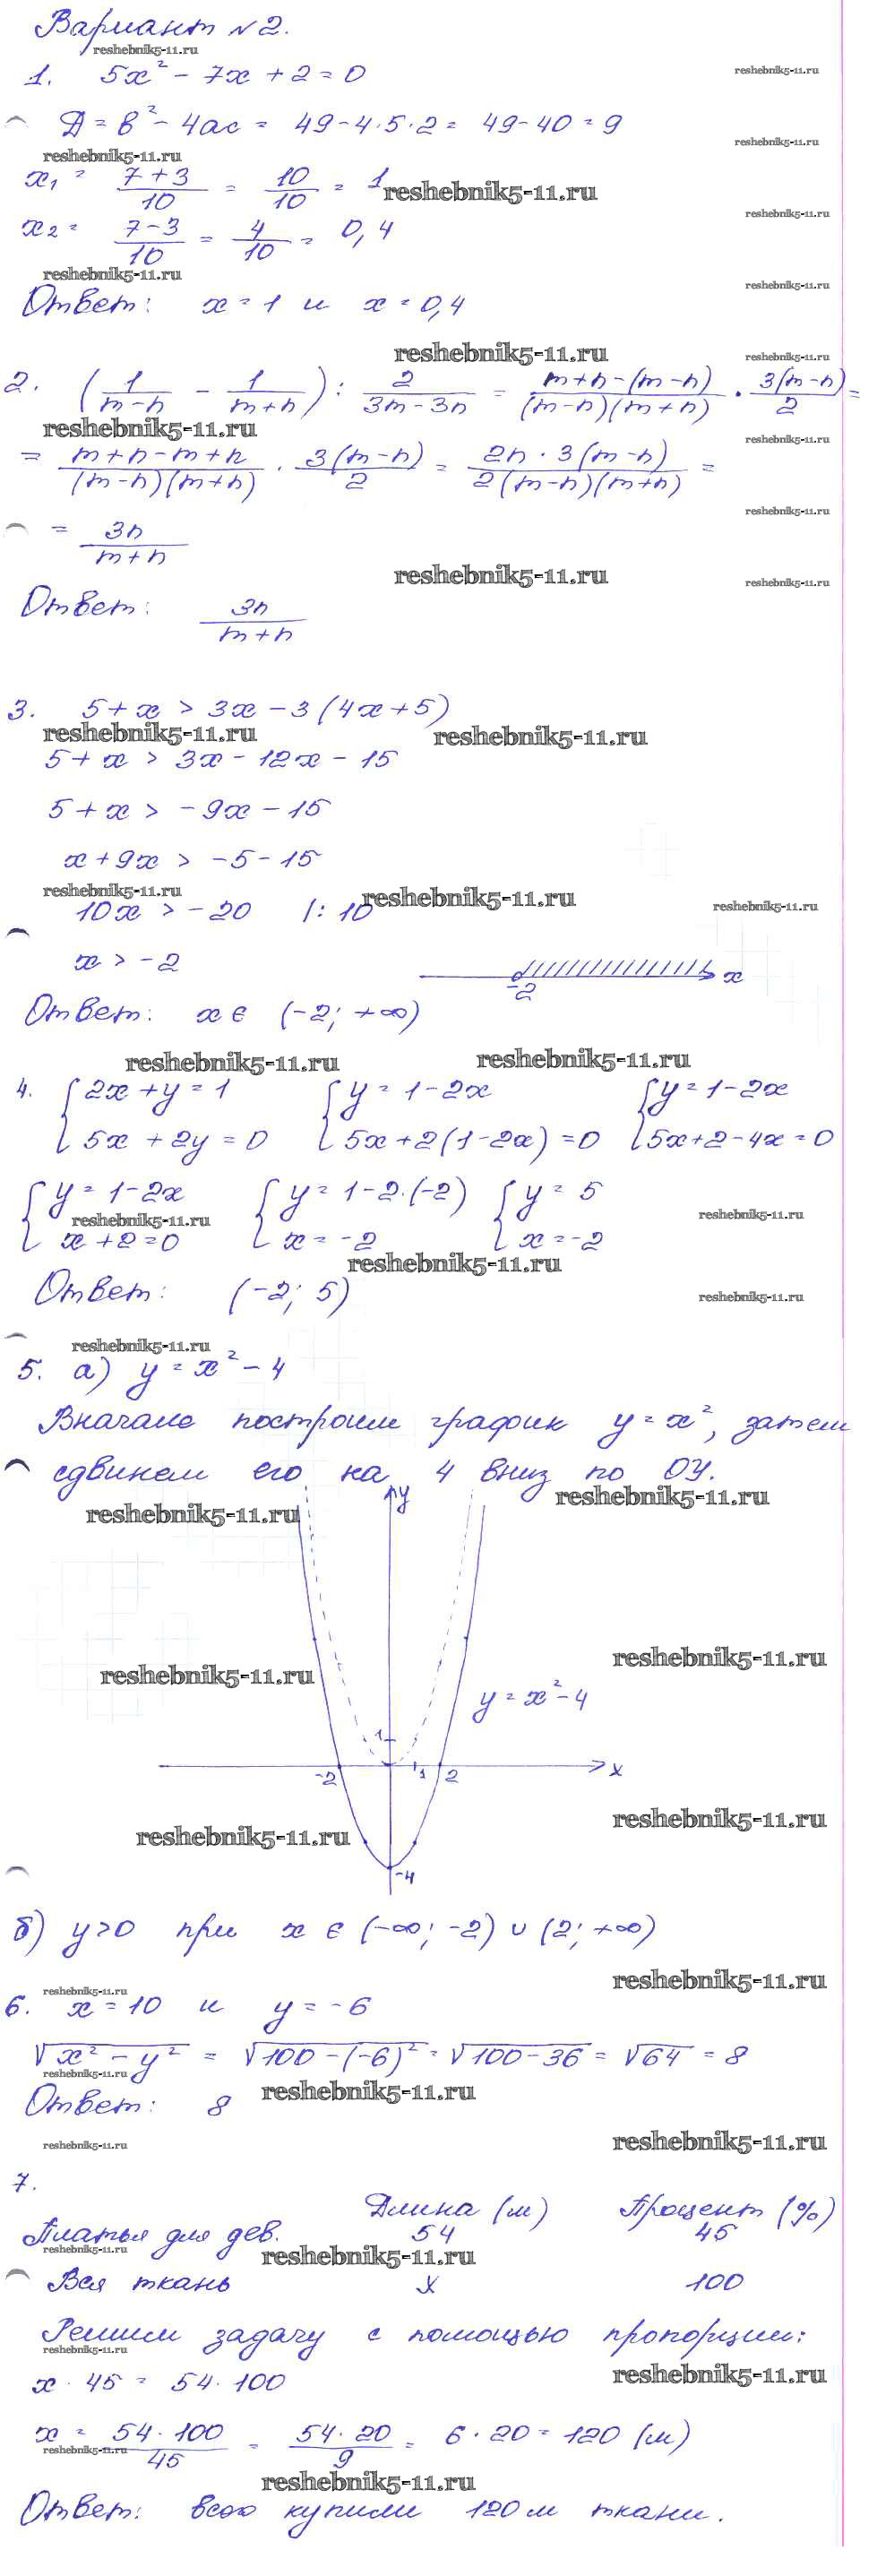 Вариант №2.
reshebnik5-11.ru
1. 5x² - 7x + 2 = 0
reshebnik5-11.ru
Д = в² - 4ac = 49 - 4·5·2 = 49 - 40 = 9
reshebnik5-11.ru
reshebnik5-11.ru
x₁ = (7+3)/10 = 10/10 = 1
reshebnik5-11.ru
reshebnik5-11.ru
x₂ = (7-3)/10 = 4/10 = 0,4
reshebnik5-11.ru
reshebnik5-11.ru
Ответ: x = 1 и x = 0,4
reshebnik5-11.ru
reshebnik5-11.ru
2. (1/(m-n) - 1/(m+n)) : 2/(3m-3n) = (m+n-(m-n))/((m-n)(m+n)) · 3(m-n)/2 =
reshebnik5-11.ru
reshebnik5-11.ru
= (m+n-m+n)/((m-n)(m+n)) · 3(m-n)/2 = 2n·3(m-n)/(2(m-n)(m+n)) =
reshebnik5-11.ru
= 3n/(m+n)
reshebnik5-11.ru
reshebnik5-11.ru
Ответ: 3n/(m+n)
3. 5 + x > 3x - 3(4x+5)
reshebnik5-11.ru
reshebnik5-11.ru
5 + x > 3x - 12x - 15
5 + x > -9x - 15
x + 9x > -5 - 15
reshebnik5-11.ru
reshebnik5-11.ru
reshebnik5-11.ru
10x > -20 |: 10
x > -2
-2 x
Ответ: x ∈ (-2; +∞)
reshebnik5-11.ru
reshebnik5-11.ru
4. {2x+y=1 {y=1-2x {y=1-2x
{5x+2y=0 {5x+2(1-2x)=0 {5x+2-4x=0
{y=1-2x {y=1-2·(-2) {y=5
reshebnik5-11.ru
reshebnik5-11.ru
{x+2=0 {x=-2 {x=-2
reshebnik5-11.ru
Ответ: (-2; 5)
reshebnik5-11.ru
reshebnik5-11.ru
5. а) y = x² - 4
Вначале построим график y = x², затем
сдвинем его на 4 вниз по OY.
y
reshebnik5-11.ru
reshebnik5-11.ru
reshebnik5-11.ru
reshebnik5-11.ru
y = x² - 4
1
-2 1 2 x
reshebnik5-11.ru
reshebnik5-11.ru
-4
б) y>0 при x ∈ (-∞; -2) ∪ (2; +∞)
reshebnik5-11.ru
reshebnik5-11.ru
6. x = 10 и y = -6
√(x² - y²) = √(100-(-6)²) = √(100-36) = √64 = 8
reshebnik5-11.ru
reshebnik5-11.ru
Ответ: 8
reshebnik5-11.ru
reshebnik5-11.ru
7.
Длина (м) Процент (%)
Платья для дев. 54 45
reshebnik5-11.ru
reshebnik5-11.ru
Вся ткань x 100
Решим задачу с помощью пропорции:
reshebnik5-11.ru
reshebnik5-11.ru
x · 45 = 54 · 100
x = 54·100/45 = 54·20/9 = 6·20 = 120 (м)
reshebnik5-11.ru
reshebnik5-11.ru
Ответ: всего купили 120 м ткани.